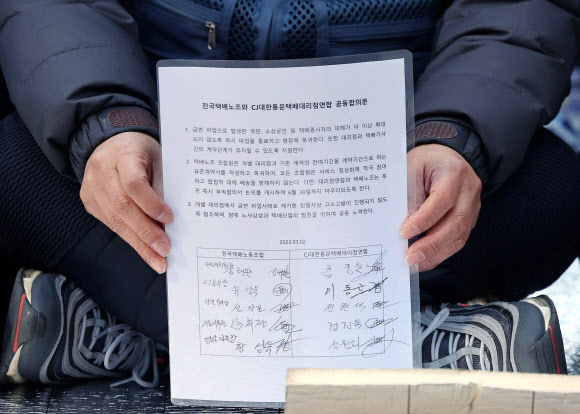 전국택배노조와 CJ대한통운택배대리점연합 공동합의문
1. 금번 파업으로 발생한 국민, 소상공인 및 택배종사자의 피해가 더 이상 확대
되지 않도록 즉시 파업을 종료하고 현장에 복귀한다. 또한 대리점과 택배기사
간의 계약관계가 유지될 수 있도록 지원한다.
2. 택배노조 조합원은 개별 대리점과 기존 계약의 잔여기간을 계약기간으로 하는
표준계약서를 작성하고 복귀하며, 모든 조합원은 서비스 정상화에 적극 참여
하고 합법적 대체 배송을 방해하지 않는다. 다만, 대리점연합과 택배노조는 복
귀 즉시 부속합의서 논의를 개시하여 6월 30일까지 마무리하도록 한다.
3. 개별 대리점에서 금번 파업사태로 제기한 민형사상 고소고발이 진행되지 않도
록 협조하며, 향후 노사상생과 택배산업의 발전을 위하여 공동 노력한다.
2022.03.02
전국택배노동조합 CJ대한통운택배대리점연합